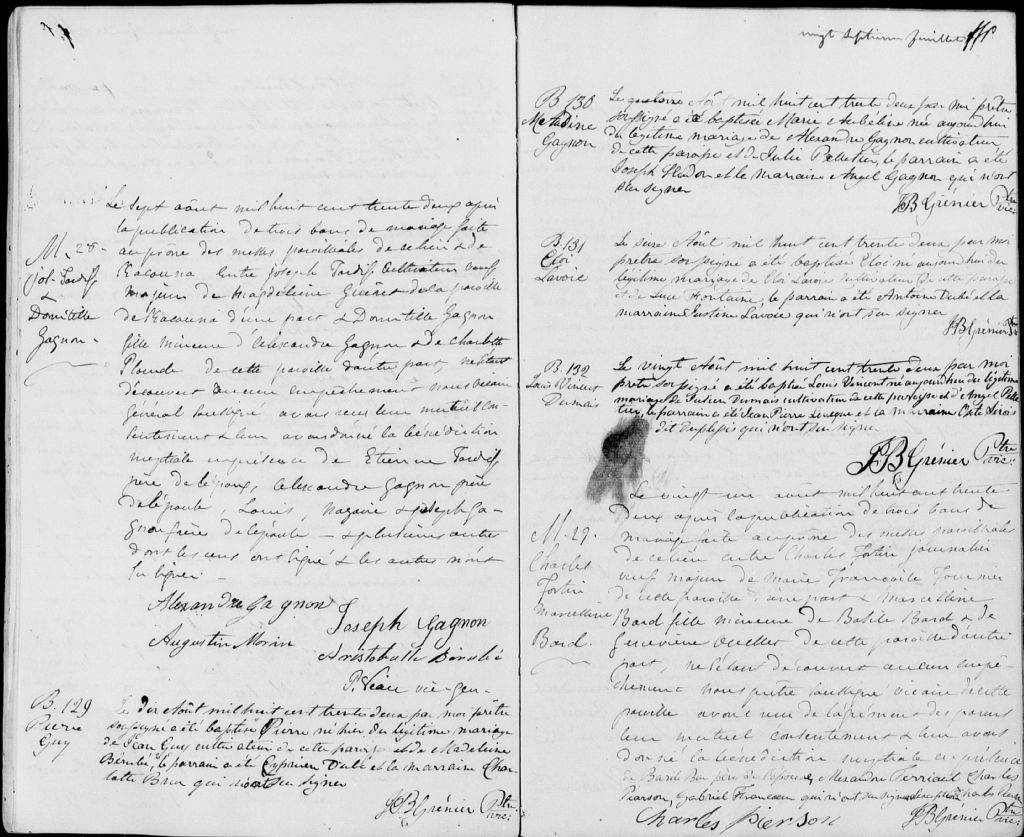 M. 28
Jos. Tardif
&
Domitille
Gagnon -
Le Sept août mil huit cent trente deux après
la publication de trois bans de mariage faite
au prône des messes paroissiales de ce lieu & de
Kacouna entre Joseph Tardif Cultivateur veuf
majeur de Magdeleine Guéret de la paroisse
de Kacouna d'une part & Domitille Gagnon
fille mineure d'Alexandre Gagnon & de Charlotte
Plourde de cette paroisse d'autre part, ne s'étant
découvert aucun empêchement nous vicaire
General soussigné avons reçu leur mutuel con-
sentement & leur avons donné la bénédiction
nuptiale en présence de Etienne Tardif
père de l'époux, Alexandre Gagnon père
de l'épouse, Louis, Nazaire & Joseph Ga-
gnon frères de l'épouse - & plusieurs autres
dont les uns ont signé & les autres n'ont
su signer -
Alexandre gagnon
Joseph Gagnon
Augustin Morin
Aristobulle
P. Viau vic-gen-
B. 129
Pierre
Guy
Le dix Août mil huit cent trente deux par moi prêtre
soussigné a été baptisé Pierre né hier du légitime mariage
de Jean Guy cultivateur de cette paroisse et de Madeleine
Bérubé, le parrain a été Cyprien Dubé et la marraine Char
lotte qui n'ont su signer
JB Grénier Ptre
vic:
vingt septieme feuillet
B 130
Gagnon
Le quatorze Août mil huit cent trente deux par moi prêtre
soussigné a été baptisée Marie née aujourd'hui
du légitime mariage de Alexandre Gagnon cultivateur
de cette paroisse et de Julie Pelletier, le parrain a été
Joseph et la marraine Angel Gagnon qui n'ont
su signer
JB Grénier Ptre
vic:
B. 131
Eloi
Lavoie
Le seize Août mil huit cent trente deux par moi
prêtre soussigné a été baptisé Eloi né aujourd'hui du
légitime mariage de Eloi Lavoie cultivateur de cette paroisse
et de Luce Fontaine, le parrain a été Antoine Dubé et la
marraine Justine Lavoie qui n'ont su signer
JB Grénier Ptre
B. 132
Louis Vincent
Dumais
Le vingt Août mil huit cent trente deux par moi
prêtre soussigné a été baptisé Louis Vincent né aujourd'hui du légitime
mariage de Julien Dumais cultivateur de cette paroisse et d'Angel Pelle
tier, le parrain a été Jean Pierre Levesque et la marraine Cste Sirois
dit Duplessis qui n'ont su signer
JB Grénier Ptre
vic:
M. 29.
Charles
Fortin
Marcelline
Bard.
Le vingt un août mil huit cent trente
deux après la publication de trois bans de
mariage faite au prône des messes paroissiales
de ce lieu entre Charles Fortin journalier
veuf majeur de Marie Françoise Fournier
de cette paroisse d'une part & Marcelline
Bard fille mineure de Basile Bard & de
Geneviève Ouellet de cette paroisse d'autre
part, ne s'étant découvert aucun empê-
chement nous prêtre soussigné vicaire de cette
paroisse avons reçu de l'agrément des parens
leur mutuel consentement & leur avons
donné la bénédiction nuptiale en présence
de Basile Bar père de l'épouse, Alexandre Terriault Charles
Pearson, Gabriel Francoeur qui n'ont su signer excepté Charles Pearson
Charles pierson
JB Grénier Ptre
vic: